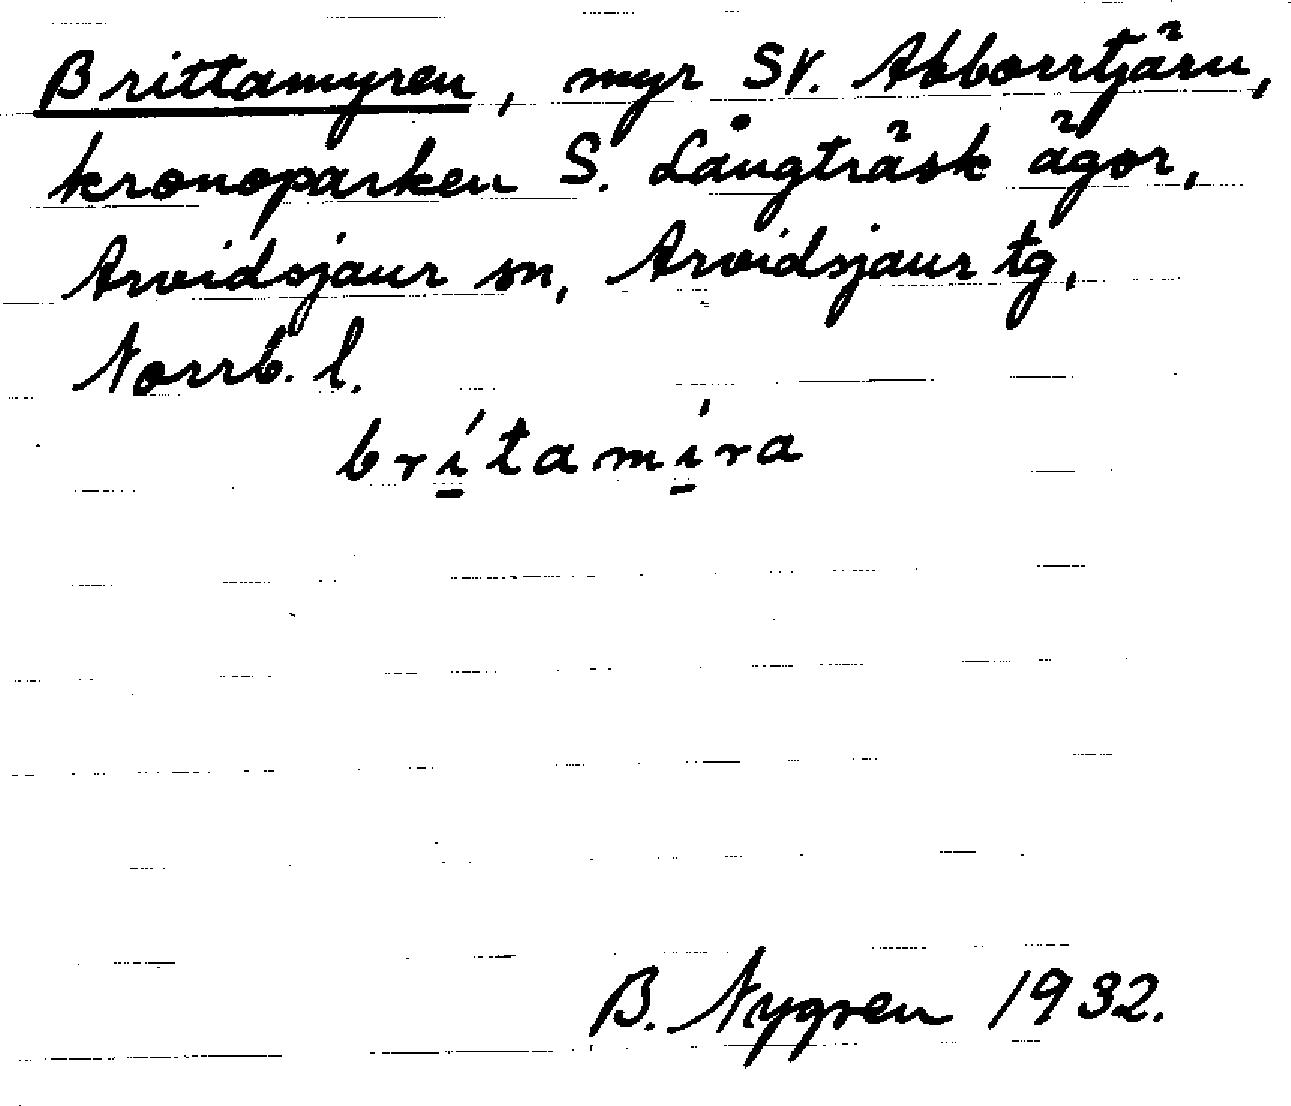 Brittamyren, myr SV. Abborrtjärn,
kronoparken S. Långträsk ägor,
Arvidsjaur sn, Arvidsjaur tg,
Norrb. l.
brítamíra
B. Nygren 1932.